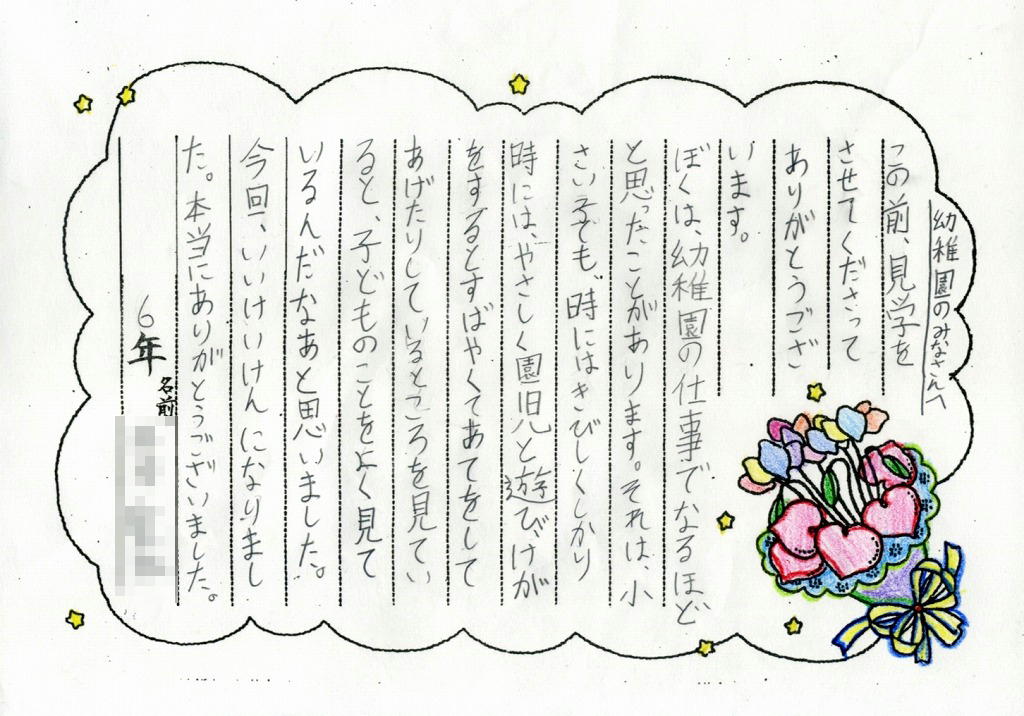 幼稚園のみなさんへ
この前、見学を
させてくださって
ありがとうござ
います。
ぼくは、幼稚園の仕事でなるほど
と思ったことがあります。それは、小
さい子でも、時にはきびしくしかり
時には、やさしく園児と遊びけが
をするとすばやくてあてをして
あげたりしているところを見てい
ると、子どものことをよく見て
いるんだなあと思いました。
今回、いいけいけんになりまし
た。本当にありがとうございました。
6年
名前